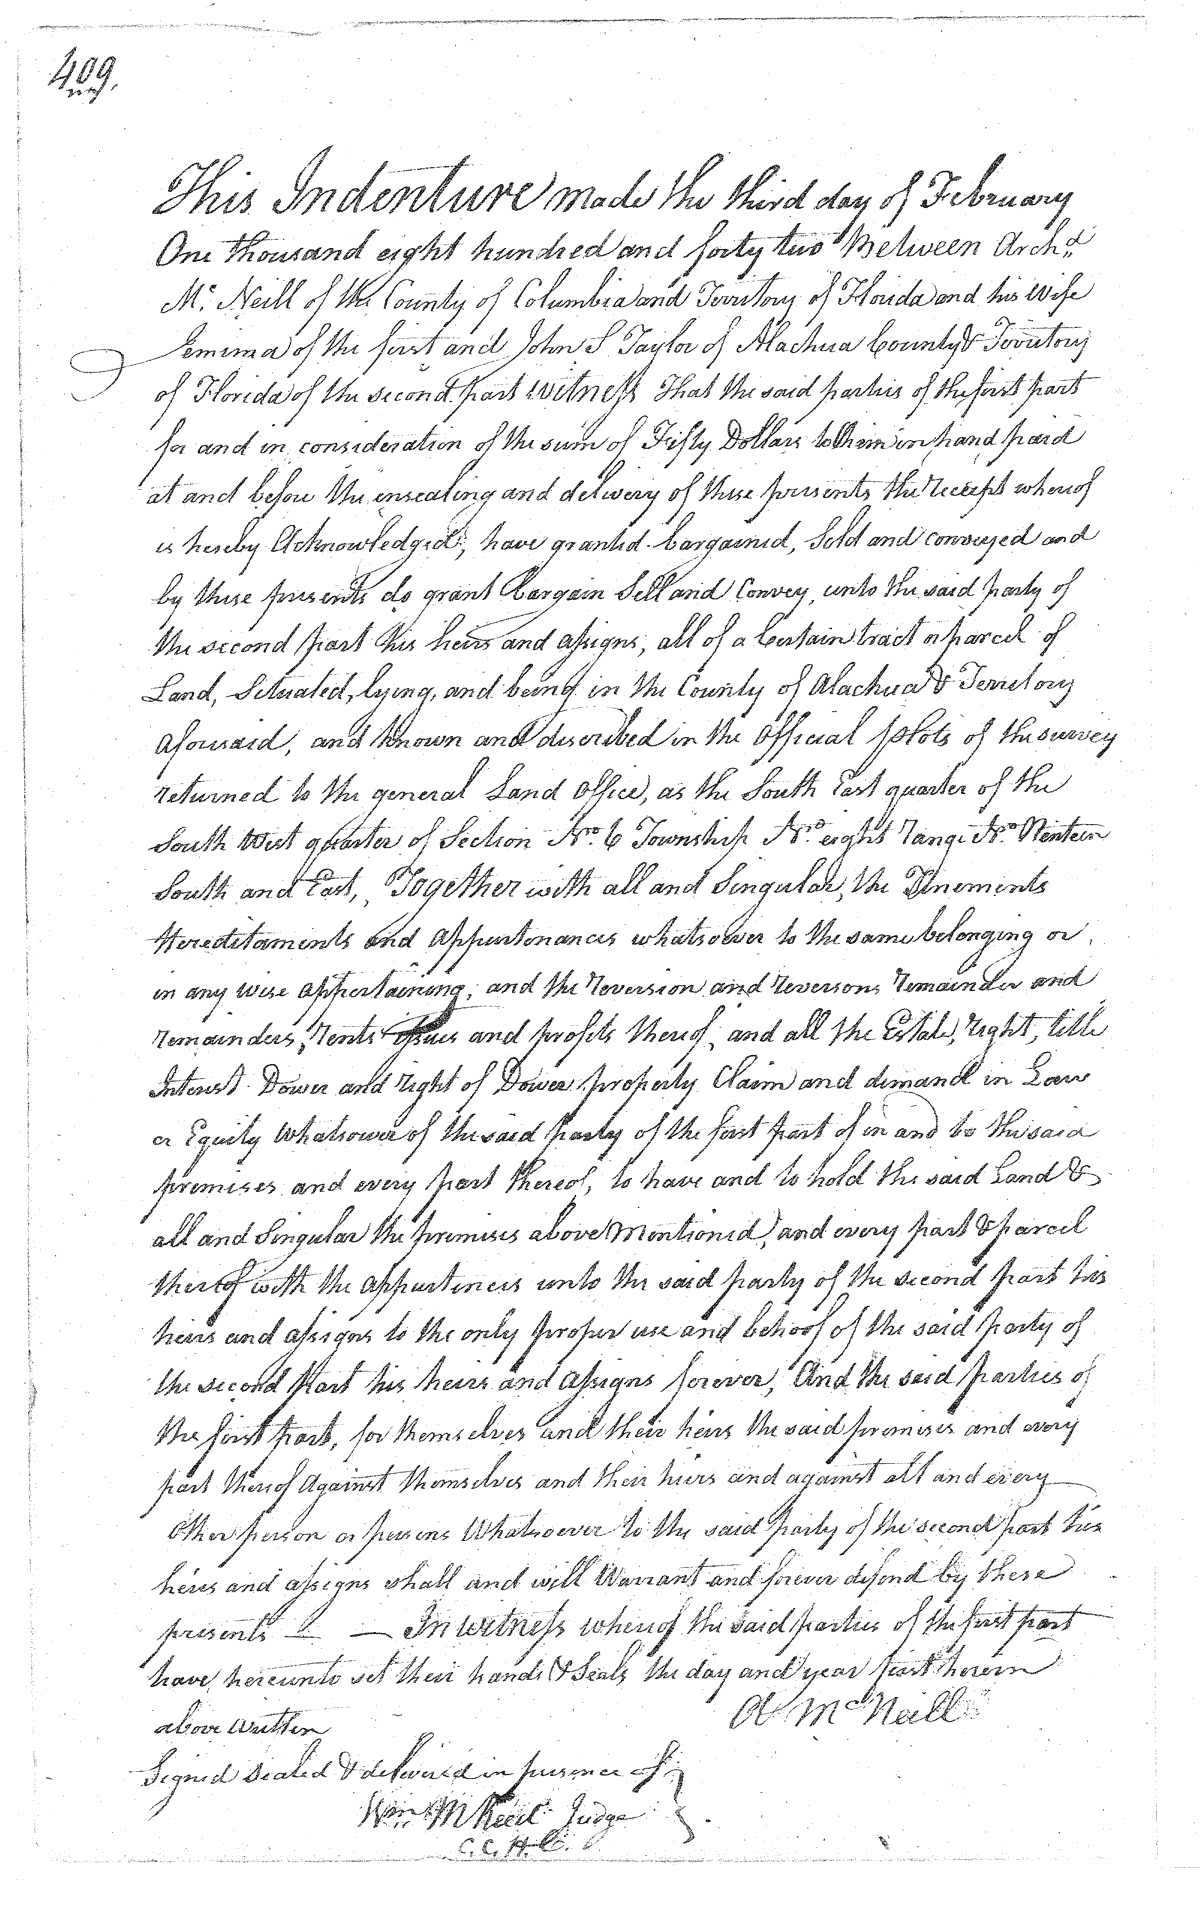 409.
This Indenture made the third day of February
One thousand eight hundred and forty two Between Archd.
Mc. Neill of the County of Columbia and Territory of Florida and his Wife
Jemima of the first and John S Taylor of Alachua County & Territory
of Florida of the second part witness That the said parties of the first part
for and in consideration of the sum of Fifty Dollars to them in hand paid
at and before the ensealing and delivery of these presents the receept whereof
is hereby Acknowledged, have granted bargained, Sold and conveyed and
by these presents do grant bargain Sell and Convey, unto the said party of
the second part his heirs and assigns, all of a Certain tract or parcel of
Land, Situated, lying, and being in the County of Alachua & Territory
aforesaid, and known and discribed in the official plots of the survey
returned to the general Land Office, as the South East quarter of the
South West quarter of Section No. 6 Township No. eight range No.
South and East, Together with all and Singular, the Tenements
Hereditaments and appurtonances whatsoever to the same belonging or
in any wise appertaining, and the Reversion and reversons remainder and
remainders, rents Issues and profits thereof, and all the Estate, right, title
Interest Dower and right of Dower property Claim and demand in Law
or Equity Whatsower of the said party of the first part of in and to the said
premises and every part thereof, to have and to hold the said Land &
all and Singular the premises above Mentioned, and every part & parcel
thereof with the appurtinces unto the said party of the second part his
heirs and assigns to the only proper use and behoof of the said party of
the second part his heirs and assigns forever, And the said parties of
the first part, for themselves and their heirs the said premises and every
part thereof Against themselves and their hiers and against all and every
Other person or persons Whatsoever to the said party of the second part his
heirs and assigns shall and will Warrant and forever defend by these
presents — — In witness whereof the said parties of the first part
have hereunto set their hands & Seals the day and year first herein
above Written
A McNeill
Signed Sealed & delivered in presence of
Wm. Judge
C. C. H. C.